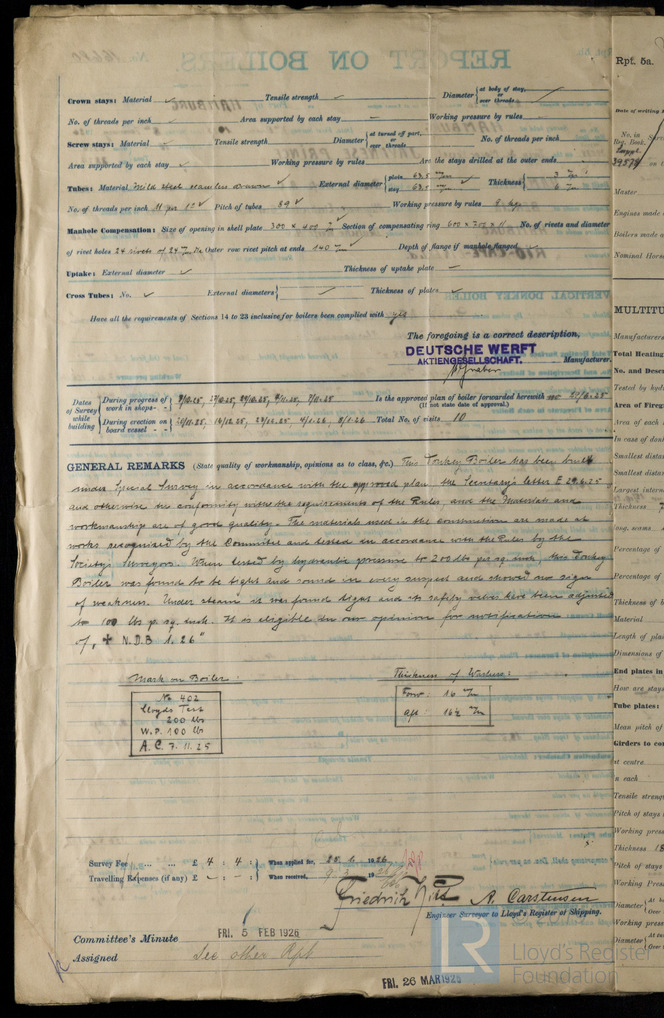 REPORT ON BOILERS.
Rpt. 5a.
Crown stays: Material ✓ Tensile strength ✓ Diameter { at body of stay, or over threads
No. of threads per inch ✓ Area supported by each stay – Working pressure by rules
Screw stays: Material ✓ Tensile strength Diameter { at turned off part, or over threads No. of threads per inch
Area supported by each stay Working pressure by rules Are the stays drilled at the outer ends
Tubes: Material Mild steel seamless drawn External diameter { plain 63.5 stay 63.5 Thickness { 3 6
No. of threads per inch 11 per 1" Pitch of tubes 89 Working pressure by rules 8 kgs
Manhole Compensation: Size of opening in shell plate 300 × 400 Section of compensating ring No. of rivets and diameter
of rivet holes 24 rivets of 24 Outer row rivet pitch at ends 140 Depth of flange if manhole flanged
Uptake: External diameter Thickness of uptake plate –
Cross Tubes: No. External diameters { Thickness of plates
Have all the requirements of Sections 14 to 23 inclusive for boilers been complied with yes
The foregoing is a correct description,
DEUTSCHE WERFT
AKTIENGESELLSCHAFT. Manufacturer.
Dates of Survey while building
During progress of work in shops - - Is the approved plan of boiler forwarded herewith
(If not state date of approval.)
During erection on board vessel - - Total No. of visits 10
GENERAL REMARKS (State quality of workmanship, opinions as to class, &c.) This Donkey Boiler has been built
under Special Survey in accordance with the approved plan the Secretary's letter E 29.6.25
and otherwise in conformity with the requirements of the Rules, and the Materials and
workmanship are of good quality. The materials used in the construction are made at
works recognized by the Committee and tested in accordance with the Rules by the
Society's Surveyors. When tested by hydraulic pressure to 200 lbs per sq inch, this Donkey
Boiler was found to be tight and sound in every respect and showed no sign
of weakness. Under steam it was found tight and its safety valves have been adjusted
to 100 lbs p. sq. inch. It is eligible in our opinion for notification
of, ✠ N.D.B 1.26"
Mark on Boiler: Thickness of Washers:
No 402
Lloyds Test
200 lbs
W.P. 100 lbs
A.C 7.11.25
For'd: 16
Aft: 16½
Survey Fee ... ... £ 4 : 4 : When applied for, 25.1.1926
Travelling Expenses (if any) £ – : – : When received,
A. Carstensen
Engineer Surveyor to Lloyd's Register of Shipping.
Committee's Minute FRI. 5 FEB 1926
Assigned See other Rpt
FRI. 26 MAR 1926
LR Lloyd's Register Foundation
No. in Reg. Book.
Master
Engines made
Boilers made
Nominal Horse
MULTITU
Manufacturers
Total Heating
No. and Descr
Tested by hyd
Area of Fire
Area of each
In case of don
Smallest dista
Smallest dista
Largest intern
Thickness
long. seams
Percentage of
Percentage of
Thickness of b
Material
Length of pla
Dimensions of
End plates in
How are stays
Tube plates:
Mean pitch of
Girders to co
at centre
in each
Tensile streng
Pitch of stays
Working press
Thickness
Pitch of stays
Working Pres
Diameter
Working press
Diameter